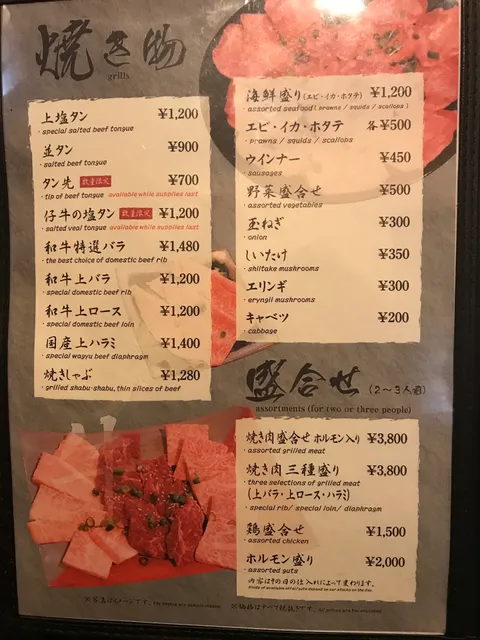 焼き物
grills
上塩タン ¥1,200
・special salted beef tongue
並タン ¥900
・salted beef tongue
タン先 数量限定 ¥700
・tip of beef tongue available while supplies last
仔牛の塩タン 数量限定 ¥1,200
・salted veal tongue available while supplies last
和牛特選バラ ¥1,480
・the best choice of domestic beef rib
和牛上バラ ¥1,200
・special domestic beef rib
和牛上ロース ¥1,200
・special domestic beef loin
国産上ハラミ ¥1,400
・special wagyu beef diaphragm
焼きしゃぶ ¥1,280
・grilled shabu-shabu, thin slices of beef
海鮮盛り(エビ・イカ・ホタテ) ¥1,200
・assorted seafood ( prawns / squids / scallops )
エビ・イカ・ホタテ 各¥500
・prawns / squids / scallops
ウインナー ¥450
・sausages
野菜盛合せ ¥500
・assorted vegetables
玉ねぎ ¥300
・onion
しいたけ ¥350
・shiitake mushrooms
エリンギ ¥300
・eryngii mushrooms
キャベツ ¥200
・cabbage
盛合せ (2〜3人前)
assortments (for two or three people)
焼き肉盛合せ ホルモン入り ¥3,800
・assorted grilled meat
焼き肉三種盛り ¥3,800
・three selections of grilled meat
(上バラ・上ロース・ハラミ)
・special rib/ special loin/ diaphragm
鶏盛合せ ¥1,500
・assorted chicken
ホルモン盛り ¥2,000
・assorted guts
内容はその日の仕入れによって変わります。
※写真はイメージです。 ※価格はすべて税抜きです。